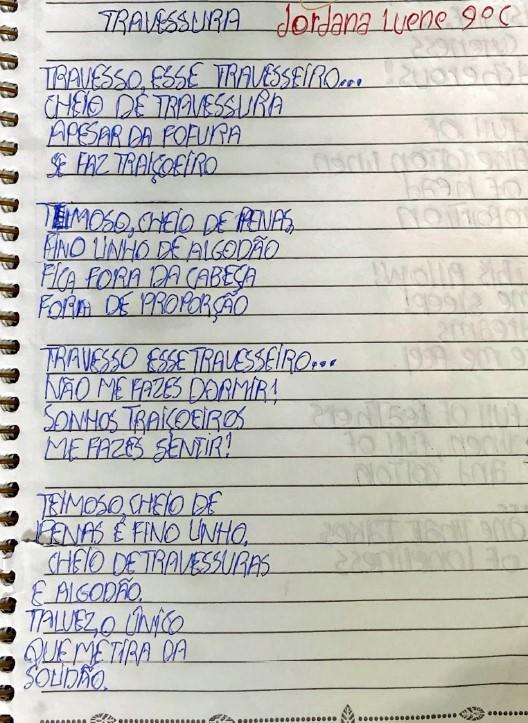 TRAVESSURA Jordana Luene 9ºC
TRAVESSO, ESSE TRAVESSEIRO...
CHEIO DE TRAVESSURA
APESAR DA FOFURA
SE FAZ TRAIÇOEIRO
TEIMOSO, CHEIO DE PENAS,
FINO LINHO DE ALGODÃO
FICA FORA DA CABEÇA
FORA DE PROPORÇÃO
TRAVESSO ESSE TRAVESSEIRO...
NÃO ME FAZES DORMIR!
SONHOS TRAIÇOEIROS
ME FAZES SENTIR!
TEIMOSO, CHEIO DE
PENAS E FINO LINHO,
CHEIO DE TRAVESSURAS
E ALGODÃO.
TALVEZ, O ÚNICO
QUE ME TIRA DA
SOLIDÃO.